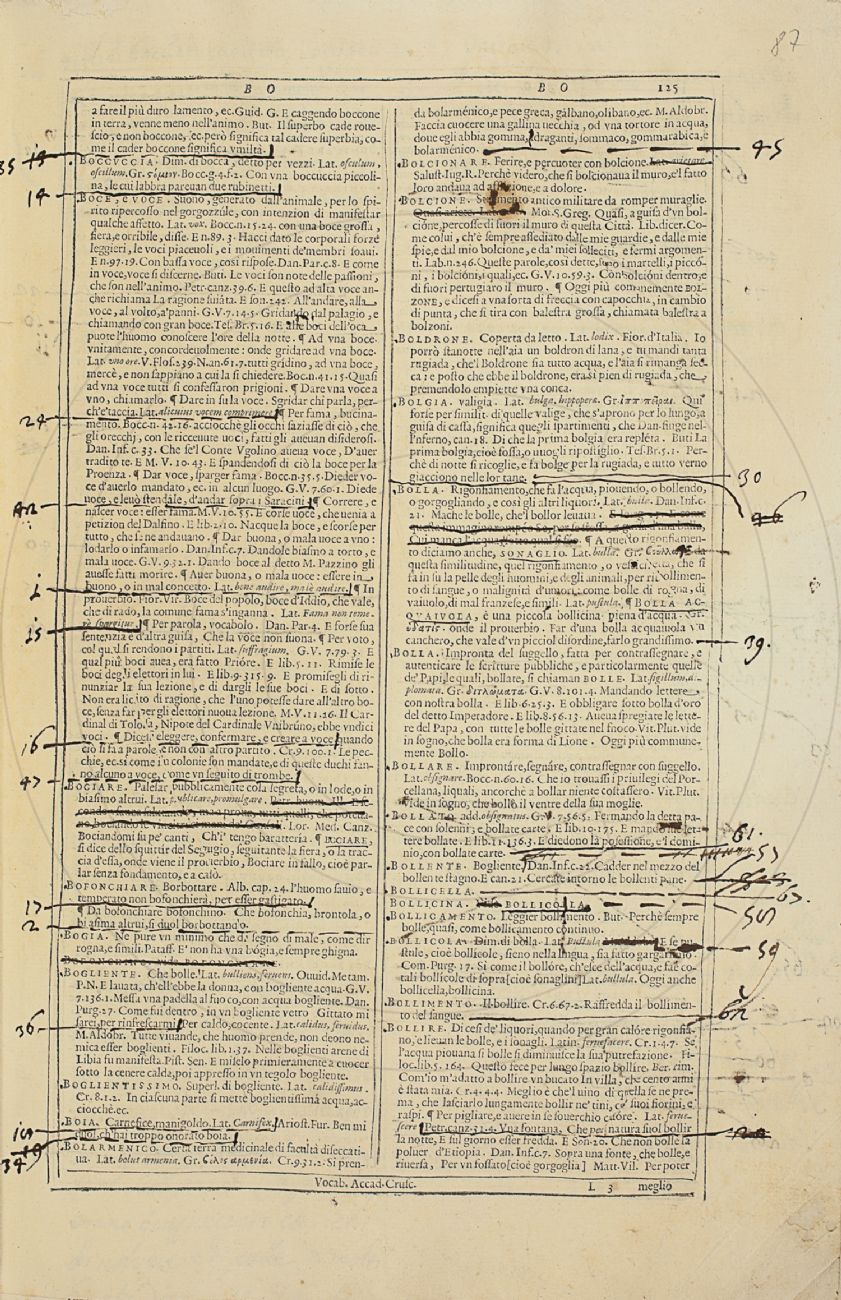 87
B O
B O 125
a fare il più duro lamento, ec. Guid. G. E caggendo boccone
in terra, venne meno nell'animo. But. Il superbo cade roue-
scio, e non boccone, ec. però significa tal cadere superbia, co-
me il cader boccone significa vmiltà.
BOCCVCCIA. Dim. di bocca, detto per vezzi. Lat. osculum,
oscillum. Gr. Bocc. g. 4. f. 2. Con vna boccuccia piccoli-
na, le cui labbra pareuan due rubinetti.
BOCE, E VOCE. Suono, generato dall'animale, per lo spi-
rito ripercosso nel gorgozzule, con intenzion di manifestar
qualche affetto. Lat. vox. Bocc. n. 15. 24. con vna boce grossa,
fiera, e orribile, disse. E n. 89. 3. Hacci dato le corporali forze
leggieri, le voci piaceuoli, e i mouimenti de'membri soaui.
E n. 97. 19. Con bassa voce, così rispose. Dan. Par. c. 8. E come
in voce, voce si discerne. Buti. Le voci son note delle passioni,
che son nell'animo. Petr. canz. 39. 6. E questo ad alta voce an-
che richiama La ragione suiata. E son. 242. All'andare, alla
voce, al volto, a'panni. G. V. 7. 14. 5. Gridando dal palagio, e
chiamando con gran boce. Tes. Br. 5. 16. E alle boci dell'oca,
puote l'huomo conoscere l'ore della notte. ¶ Ad vna boce.
vnitamente, concordeuolmente: onde gridare ad vna boce.
Lat. vno ore. V. Flos. 239. N. an. 61. 7. tutti gridino, ad vna boce,
mercè, e non sappiano a cui la si chiedere. Boc. n. 41. 15. Quasi
ad vna voce tutti si confessaron prigioni. ¶ Dare vna voce a
vno, chiamarlo. ¶ Dare in su la voce. Sgridar chi parla, per-
ch'e'taccia. Lat. alicuius vocem comprimere. ¶ Per fama, bucina-
mento. Bocc. n. 42. 16. acciocchè gli occhi saziasse di ciò, che
gli orecchj, con le riceuute uoci, fatti gli aueuan disiderosi.
Dan. Inf. c. 33. Che se'l Conte Vgolino aueua voce, D'auer
tradito te. E M. V. 10. 43. E spandendosi di ciò la boce per la
Proenza. ¶ Dar voce, sparger fama. Bocc. n. 35. 5. Dieder vo-
ce d'auerlo mandato, ec. in alcun luogo. G. V. 7. 60. 1. Diede
uoce, e leuò stendale, d'andar sopra i Saracini. ¶ Correre, e
nascer voce: esser fama. M. V. 10. 55. E corse uoce, che uenia a
petizion del Dalfino. E lib. 2. 10. Nacque la boce, e scorse per
tutto, che se ne andauano. ¶ Dar buona, o mala uoce a vno:
lodarlo o infamarlo. Dan. Inf. c. 7. Dandole biasmo a torto, e
mala uoce. G. V. 9. 32. 1. Dando boce al detto M. Pazzino gli
auesse fatti morire. ¶ Auer buona, o mala uoce: essere in
buono, o in mal concetto. Lat. bene audire, malè audire. ¶ In
prouerbio. Fior. Vir. Boce del popolo, boce d'Iddio, che vale,
che di rado, la comune fama s'inganna. Lat. Fama non teme-
rè spargitur. ¶ Per parola, vocabolo. Dan. Par. 4. E forse sua
sentenzia è d'altra guisa, Che la voce non suona. ¶ Per voto,
col qual si rendono i partiti. Lat. suffragium. G. V. 7. 79. 3. E
qual più boci auea, era fatto Priore. E lib. 5. 11. Rimise le
boci degli elettori in lui. E lib. 9. 315. 9. E promisegli di ri-
nunziar la sua lezione, e di dargli le sue boci. E di sotto.
Non era licito di ragione, che l'uno potesse dare all'altro bo-
ce, senza far per gli elettori nuoua lezione. M. V. 11. 26. Il Car-
dinal di Tolosa, Nipote del Cardinale Vnibruno, ebbe vndici
voci. ¶ Dicesi eleggere, confermare, e creare a voce, quando
ciò si fa a parole, e non con altro partito. Cr. 9. 100. 1. Le pec-
chie, ec. si come i'n colonie son mandate, e di queste duchi fan-
no alcuno a voce, come vn seguito di trombe.
BOCIARE. Palesar pubblicamente cosa segreta, o in lode, o in
biasimo altrui. Lat. publicare, promulgare.
Lor. Med. Canz.
Bociandomi su pe' canti, Ch'i' tengo baratteria. ¶ BUCIARE,
si dice dello squittir del Segugio, seguitante la fiera, o la trac-
cia d'essa, onde viene il prouerbio, Bociare in fallo, cioè par-
lar senza fondamento, e a caso.
BOFONCHIARE. Borbottare. Alb. cap. 24. l'huomo sauio, e
temperato non bofonchierà, per esser gastigato.
¶ Da bofonchiare bofonchino. Che bofonchia, brontola, o
biasima altrui, si duol borbottando.
BOGIA. Ne pure vn minimo che di segno di male, come dir
rogna, e simili. Pataff. E' non ha vna bogia, e sempre ghigna.
BOGLIENTE. Che bolle. Lat. bulliens, feruens. Ouuid. Metam.
P. N. E lauata, ch'ell'ebbe la donna, con bogliente acqua. G. V.
7. 136. 1. Messa vna padella al fuoco, con acqua bogliente. Dan.
Purg. 27. Come fui dentro, in vn bogliente vetro Gittato mi
sarei, per rinfrescarmi. Per caldo, cocente. Lat. calidus, feruidus.
M. Aldobr. Tutte viuande, che huomo prende, non deono ne-
mica esser boglienti. Filoc. lib. 1. 37. Nelle boglienti arene di
Libia fu manifesta. Pist. Sen. E miselo primieramente a cuocer
sotto la cenere calda, poi appresso in vn tegolo bogliente.
BOGLIENTISSIMO. Superl. di bogliente. Lat. calidissimus.
Cr. 8. 1. 2. In ciascuna parte si mette boglientissima acqua, ac-
ciocchè. ec.
BOIA. Carnefice, manigoldo. Lat. Carnifex. Ariost. Fur. Ben mi
duol, ch'hai troppo onorato boia.
BOLARMENICO. Certa terra medicinale di facultà diseccati-
ua. Lat. bolus armenia. Gr. βῶλος ἀρμενία. Cr. 9. 31. 2. Si pren-
da bolarménico, e pece greca, gálbano, olibano, ec. M. Aldobr.
Faccia cuocere una gallina uecchia, od vna tortore in acqua,
doue egli abbia gomma, draganti, sommaco, gommarabica, e
bolarménico.
BOLCIONARE. Ferire, e percuoter con bolcione.
Salust. Iug. R. Perchè videro, che si bolcionaua il muro, e'l fatto
loro andaua ad afflizione, e a dolore.
BOLCIONE. Strumento antico militare da romper muraglie.
Mor. S. Greg. Quasi, a guisa d'vn bol-
cione, percosse di fuori il muro di questa Città. Lib. dicer. Co-
me colui, ch'è sempre asseditato dalle mie guardie, e dalle mie
spie, e dal mio bolcione, e da' miei solleciti, e fermi argomen-
ti. Lab. n. 246. Queste parole, così dette, sono i martelli, i picco-
ni, i bolcioni, i quali, ec. G. V. 10. 59. 3. Con bolcioni dentro, e
di fuori pertugiaro il muro. ¶ Oggi più comunemente BOL-
ZONE, e dicesi a vna sorta di freccia con capocchia, in cambio
di punta, che si tira con balestra grossa, chiamata balestra a
bolzoni.
BOLDRONE. Coperta da letto. Lat. lodix. Fior. d'Italia. Io
porrò stanotte nell'aia un boldron di lana, e tu mandi tanta
rugiada, che'l Boldrone sia tutto acqua, e l'aia si rimanga sec-
ca: e posto che ebbe il boldrone, era sì pien di rugiada, che
premendolo empiette vna conca.
BOLGIA. valigia. Lat. bulga, hippopera. Gr. ἱπποπῆραι. Qui
forse per similit. di quelle valige, che s'aprono per lo lungo, a
guisa di cassa, significa quegli ispartimenti, che Dan. finge nel-
l'nferno, can. 18. Di che la prima bolgia era repleta. Buti La
prima bolgia, cioè fossa, o uuogli ripostiglio. Tes. Br. 5. 1. Per-
chè di notte si ricoglie, e fa bolge per la rugiada, e tutto verno
giacciono nelle lor tane.
BOLLA. Rigonfiamento, che fa l'acqua, piouendo, o bollendo,
o gorgogliando, e così gli altri liquori. Lat. bulla. Dan. Inf. c.
21. Ma che le bolle, che'l bollor leuaua.
¶ A questo rigonfiamen-
to diciamo anche, SONAGLIO. Lat. bulla. Gr.
questa similitudine, quel rigonfiamento, o vescichetta, che si
fa in su la pelle degli huomini, e degli animali, per ribollimen-
to di sangue, o malignità d'umori, come bolle di rogna, di
vaiuolo, di mal franzese, e simili. Lat. pustula. ¶ BOLLA AC-
QVAIVOLA, è una piccola bollicina, piena d'acqua.
onde il prouerbio. Far d'una bolla acquaiuola vn
canchero, che vale d'vn picciol disordine, farlo grandissimo.
BOLLA. Impronta del suggello, fatta per contrassegnare, e
autenticare le scritture pubbliche, e particolarmente quelle
de' Papi, le quali, bollate, si chiaman BOLLE. Lat. sigillum, di-
plomata. Gr. διπλώματα. G. V. 8. 101. 4. Mandando lettere
con nostra bolla. E lib. 6. 25. 3. E obbligare sotto bolla d'oro
del detto Imperadore. E lib. 8. 56. 13. Auena spregiate le lette-
re del Papa, con tutte le bolle gittate nel fuoco. Vit. Plut. vide
in sogno, che bolla era forma di Lione. Oggi più commune-
mente Bollo.
BOLLARE. Improntare, segnáre, contrassegnar con suggello.
Lat. obsignare. Bocc. n. 60. 16. Che io trouassi i priuilegi del Por-
cellana, liquali, ancorchè a bollar niente costassero. Vit. Plut.
vide in sogno, che bollò il ventre della sua moglie.
BOLLATO. add. obsignatus. G. V. 7. 56. 5. Fermando la detta pa-
ce con solenni, e bollate carte. E lib. 10. 175. E mandò le let-
tere bollate. E lib. 11. 136. 3. E diedono la possessione, e'l domi-
nio, con bollate carte.
BOLLENTE. Bogliente. Dan. Inf. c. 22. Cadder nel mezzo del
bollente stagno. E can. 21. Cercate intorno le bollenti pane.
BOLLICELLA.
BOLLICINA. BOLLICOLA.
BOLLICAMENTO. Leggier bollimento. But. Perchè sempre
bolle, quasi, come bollicamento continuo.
BOLLICOLA. Dim. di bolla. Lat. pustula E se pu-
stule, cioè bollicole, sieno nella lingua, si fa fatto gargarismo
Com. Purg. 17. Si come il bollóre, ch'esce dell'acqua, e fae co-
tali bollicole di sopra [cioè sonaglini] Lat. bullula. Oggi anche
bollicella, bollicina.
BOLLIMENTO. Il bollire. Cr. 6. 67. 2. Raffredda il bollimen-
to del sangue.
BOLLIRE. Dicesi de' liquori, quando per gran calóre rigonfia-
no, e lieuan le bolle, e i sonagli. Latin. feruefacere. Cr. 1. 4. 7. Se
l'acqua piouana si bolle si diminuisce la sua putrefazione. Fi-
loc. lib. 5. 164. Questo fece per lungo spazio bollire. Ber. rim.
Com'io m'adatto a bollire vn bucato In villa, che cento anni
è stata mia. Cr. 4. 4. 4. Meglio è che'l uino di quella se ne pre-
ma, che lasciarlo lungamente bollir ne' tini, co' suoi fiorini, e
raspi. ¶ Per pigliare, e auere in se souerchio calóre. Lat. ferue-
scere Petr. canz. 31. 4. Vna fontana, Che per natura suol bollir
la notte, E sul giorno esser fredda. E Son. 20. Che non bolle la
poluer d'Etiopia. Dan. Inf. c. 7. Sopra una fonte, che bolle, e
riuersa, Per vn fossato [cioè gorgoglia] Matt. Vil. Per poter
Vocab. Accad. Crusc. L 3 meglio
35
14
24
15
16
47
17
2
36
34
45
30
39.
61.
53
63.
59
62